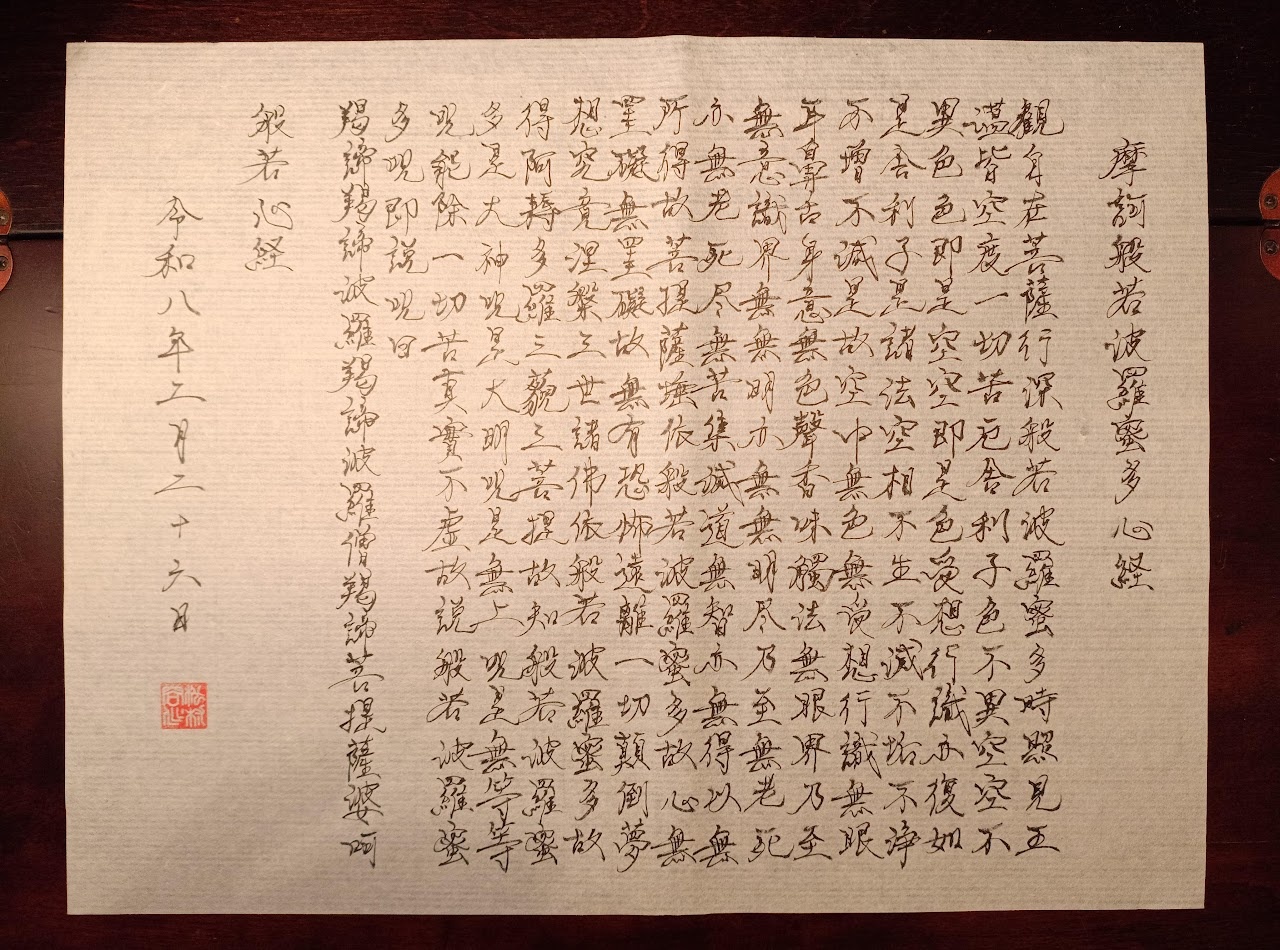 摩訶般若波羅蜜多心経
觀自在菩薩行深般若波羅蜜多時照見五
蘊皆空度一切苦厄舎利子色不異空空不
異色色即是空空即是色受想行識亦復如
是舎利子是諸法空相不生不滅不垢不浄
不増不減是故空中無色無受想行識無眼
耳鼻舌身意無色聲香味觸法無眼界乃至
無意識界無無明亦無無明尽乃至無老死
亦無老死尽無苦集滅道無智亦無得以無
所得故菩提薩埵依般若波羅蜜多故心無
罣礙無罣礙故無有恐怖遠離一切顛倒夢
想究竟涅槃三世諸佛依般若波羅蜜多故
得阿耨多羅三藐三菩提故知般若波羅蜜
多是大神呪是大明呪是無上呪是無等等
呪能除一切苦真實不虚故説般若波羅蜜
多呪即説呪曰
羯諦羯諦波羅羯諦波羅僧羯諦菩提薩婆訶
般若心経
令和八年二月二十六日